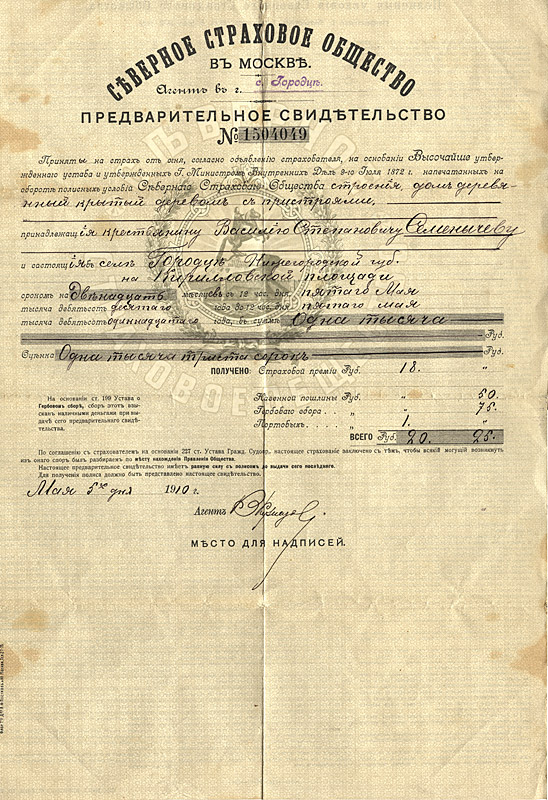 СѢВЕРНОЕ СТРАХОВОЕ ОБЩЕСТВО
ВЪ МОСКВѢ.
Агентъ въ г. с. Городцѣ
ПРЕДВАРИТЕЛЬНОЕ СВИДѢТЕЛЬСТВО
№ 1504049
Приняты на страхъ отъ огня, согласно объявленію страхователя, на основаніи Высочайше утверж-
деннаго устава и утвержденныхъ Г. Министромъ Внутреннихъ Дѣлъ 9-го Іюля 1872 г. напечатанныхъ на
оборотѣ полисныхъ условій Сѣвернаго Страховаго Общества строенія, домъ деревя-
нный крытый деревомъ съ пристроями,
принадлежащія крестьянину Василію Степановичу Семеничеву
и состоящія въ селѣ Городцѣ Нижегородской губ.
на Кирилловской площади
срокомъ на двѣнадцать мѣсяцевъ съ 12 час. дня, пятаго Мая
тысяча девятьсотъ десятаго года до 12 час. дня пятаго мая
тысяча девятьсотъ одиннадцатаго года, въ суммѣ Одна тысяча
Руб.
Оцѣнка Одна тысяча триста сорокъ Руб.
ПОЛУЧЕНО: Страховой преміи Руб. 18. "
На основаніи ст. 109 Устава о
Гербовомъ сборѣ, сборъ этотъ взы-
сканъ наличными деньгами при вы-
дачѣ сего предварительнаго свидѣ-
тельства.
Казенной пошлины Руб. " 50.
Гербоваго сбора . . " " 75.
Портовыхъ. . . . " 1. "
ВСЕГО Руб. 20. 25.
По соглашенію съ страхователемъ на основаніи 227 ст. Устава Гражд. Судопр. настоящее страхованіе заключено съ тѣмъ, чтобы всякій могущій возникнуть
изъ онаго споръ былъ разбираемъ по мѣсту нахожденія Правленія Общества.
Настоящее предварительное свидѣтельство имѣетъ равную силу съ полисомъ до выдачи сего послѣдняго.
Для полученія полиса должно быть представлено настоящее свидѣтельство.
Мая 5го дня 1910 г.
Агентъ
МѢСТО ДЛЯ НАДПИСЕЙ.